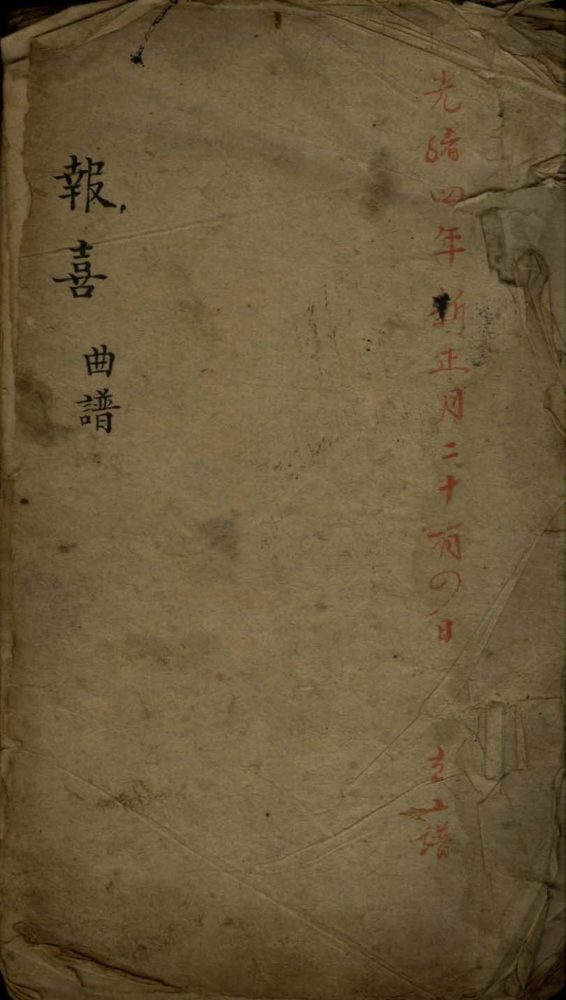 光緒四年新正月二十有四日 立工譜
報喜 曲譜